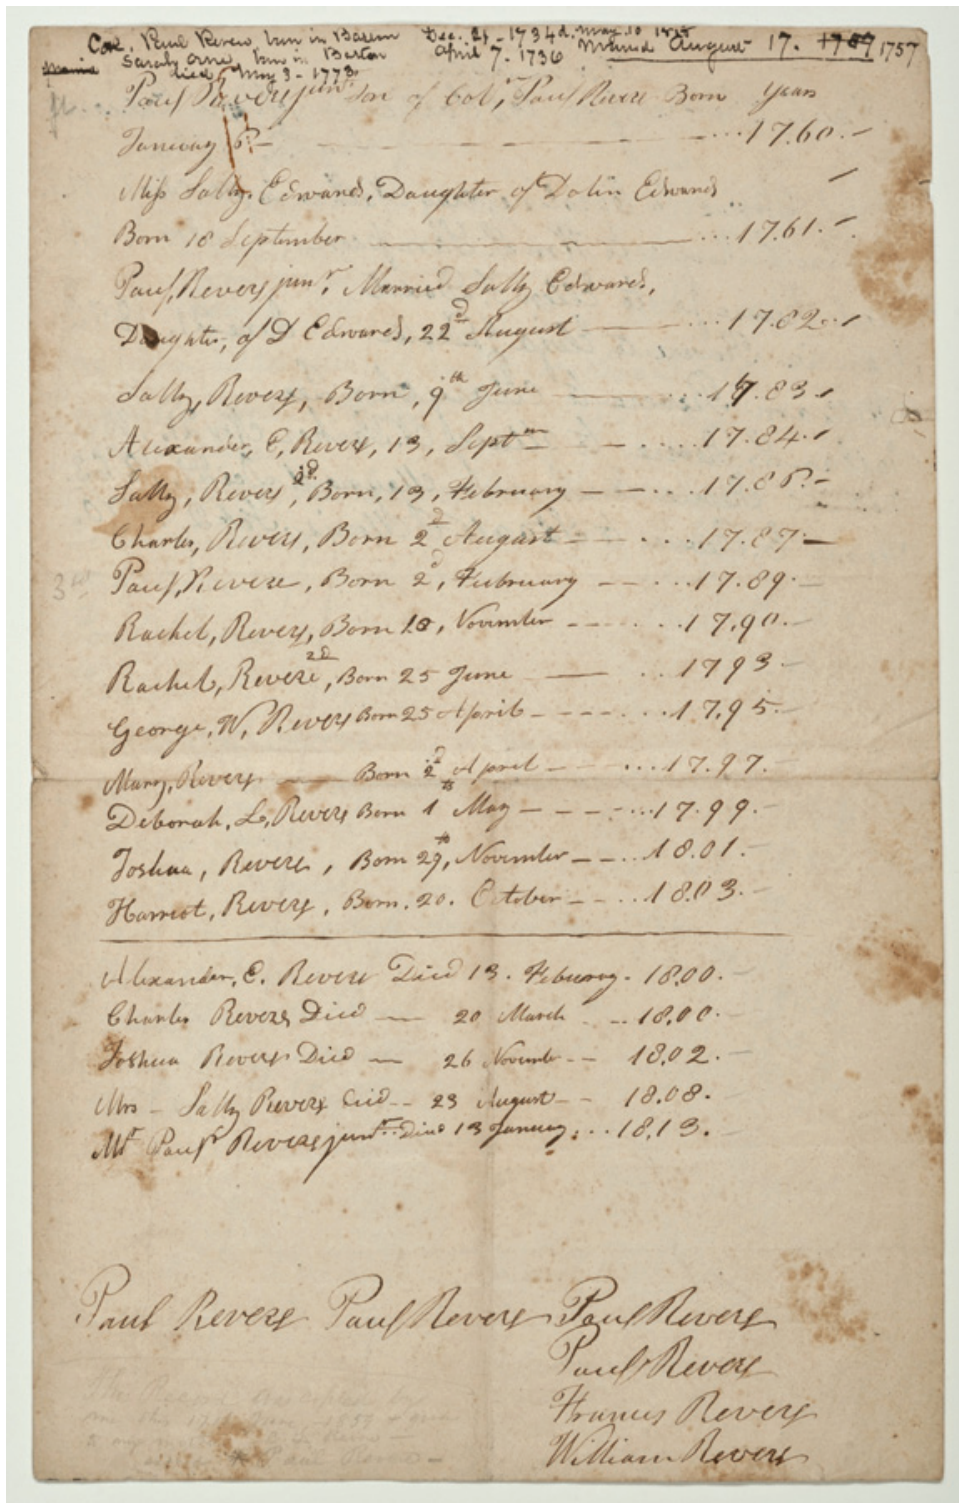 Col. Paul Revere born in Boston Dec. 21 - 1734 d. May 10 1818
Sarah Orne, born in Boston April 7. 1736 Married August 17. 1757 1757
died May 3 - 1773
Paul Revere junr. Son of Col, Paul Revere Born Years
January 6 17.60.
Miss Sally, Edwards, Daughter of Dolin Edwards
Born 18 September 17.61.
Paul, Revere junr, Married Sally Edwards,
Daughter, of D Edwards, 22d August 17.82.
Sally, Revere, Born, 9th June 17.83.
Alexander, E, Revere, 13, Septm 17.84.
Sally, Revere 2d, Born, 13, February 17.86.
Charles, Revere, Born 2d August 17.87
Paul, Revere, Born 2d, February 17.89.
Rachel, Revere, Born 10, November 17.90.
Rachel, Revere 2d, Born 25 June 1793
George, W, Revere Born 25 April 17.95.
Mary, Revere Born 2d April 17.97.
Deborah, L, Revere Born 1 May 17.99.
Joshua, Revere, Born 29, November 18.01.
Harriot, Revere, Born. 20. October 18.03.
Alexander, E. Revere Died 13. February. 18.00.
Charles Revere Died 20 March 18.00.
Joshua Revere Died 26 Novembr 18.02.
Mrs Sally Revere Died 23 August 18.08.
Mr Paul Revere junr. Died 13 January, 18.13.
Paul Revere Paul Revere Paul Revere
Paul Revere
Francis Revere
William Revere